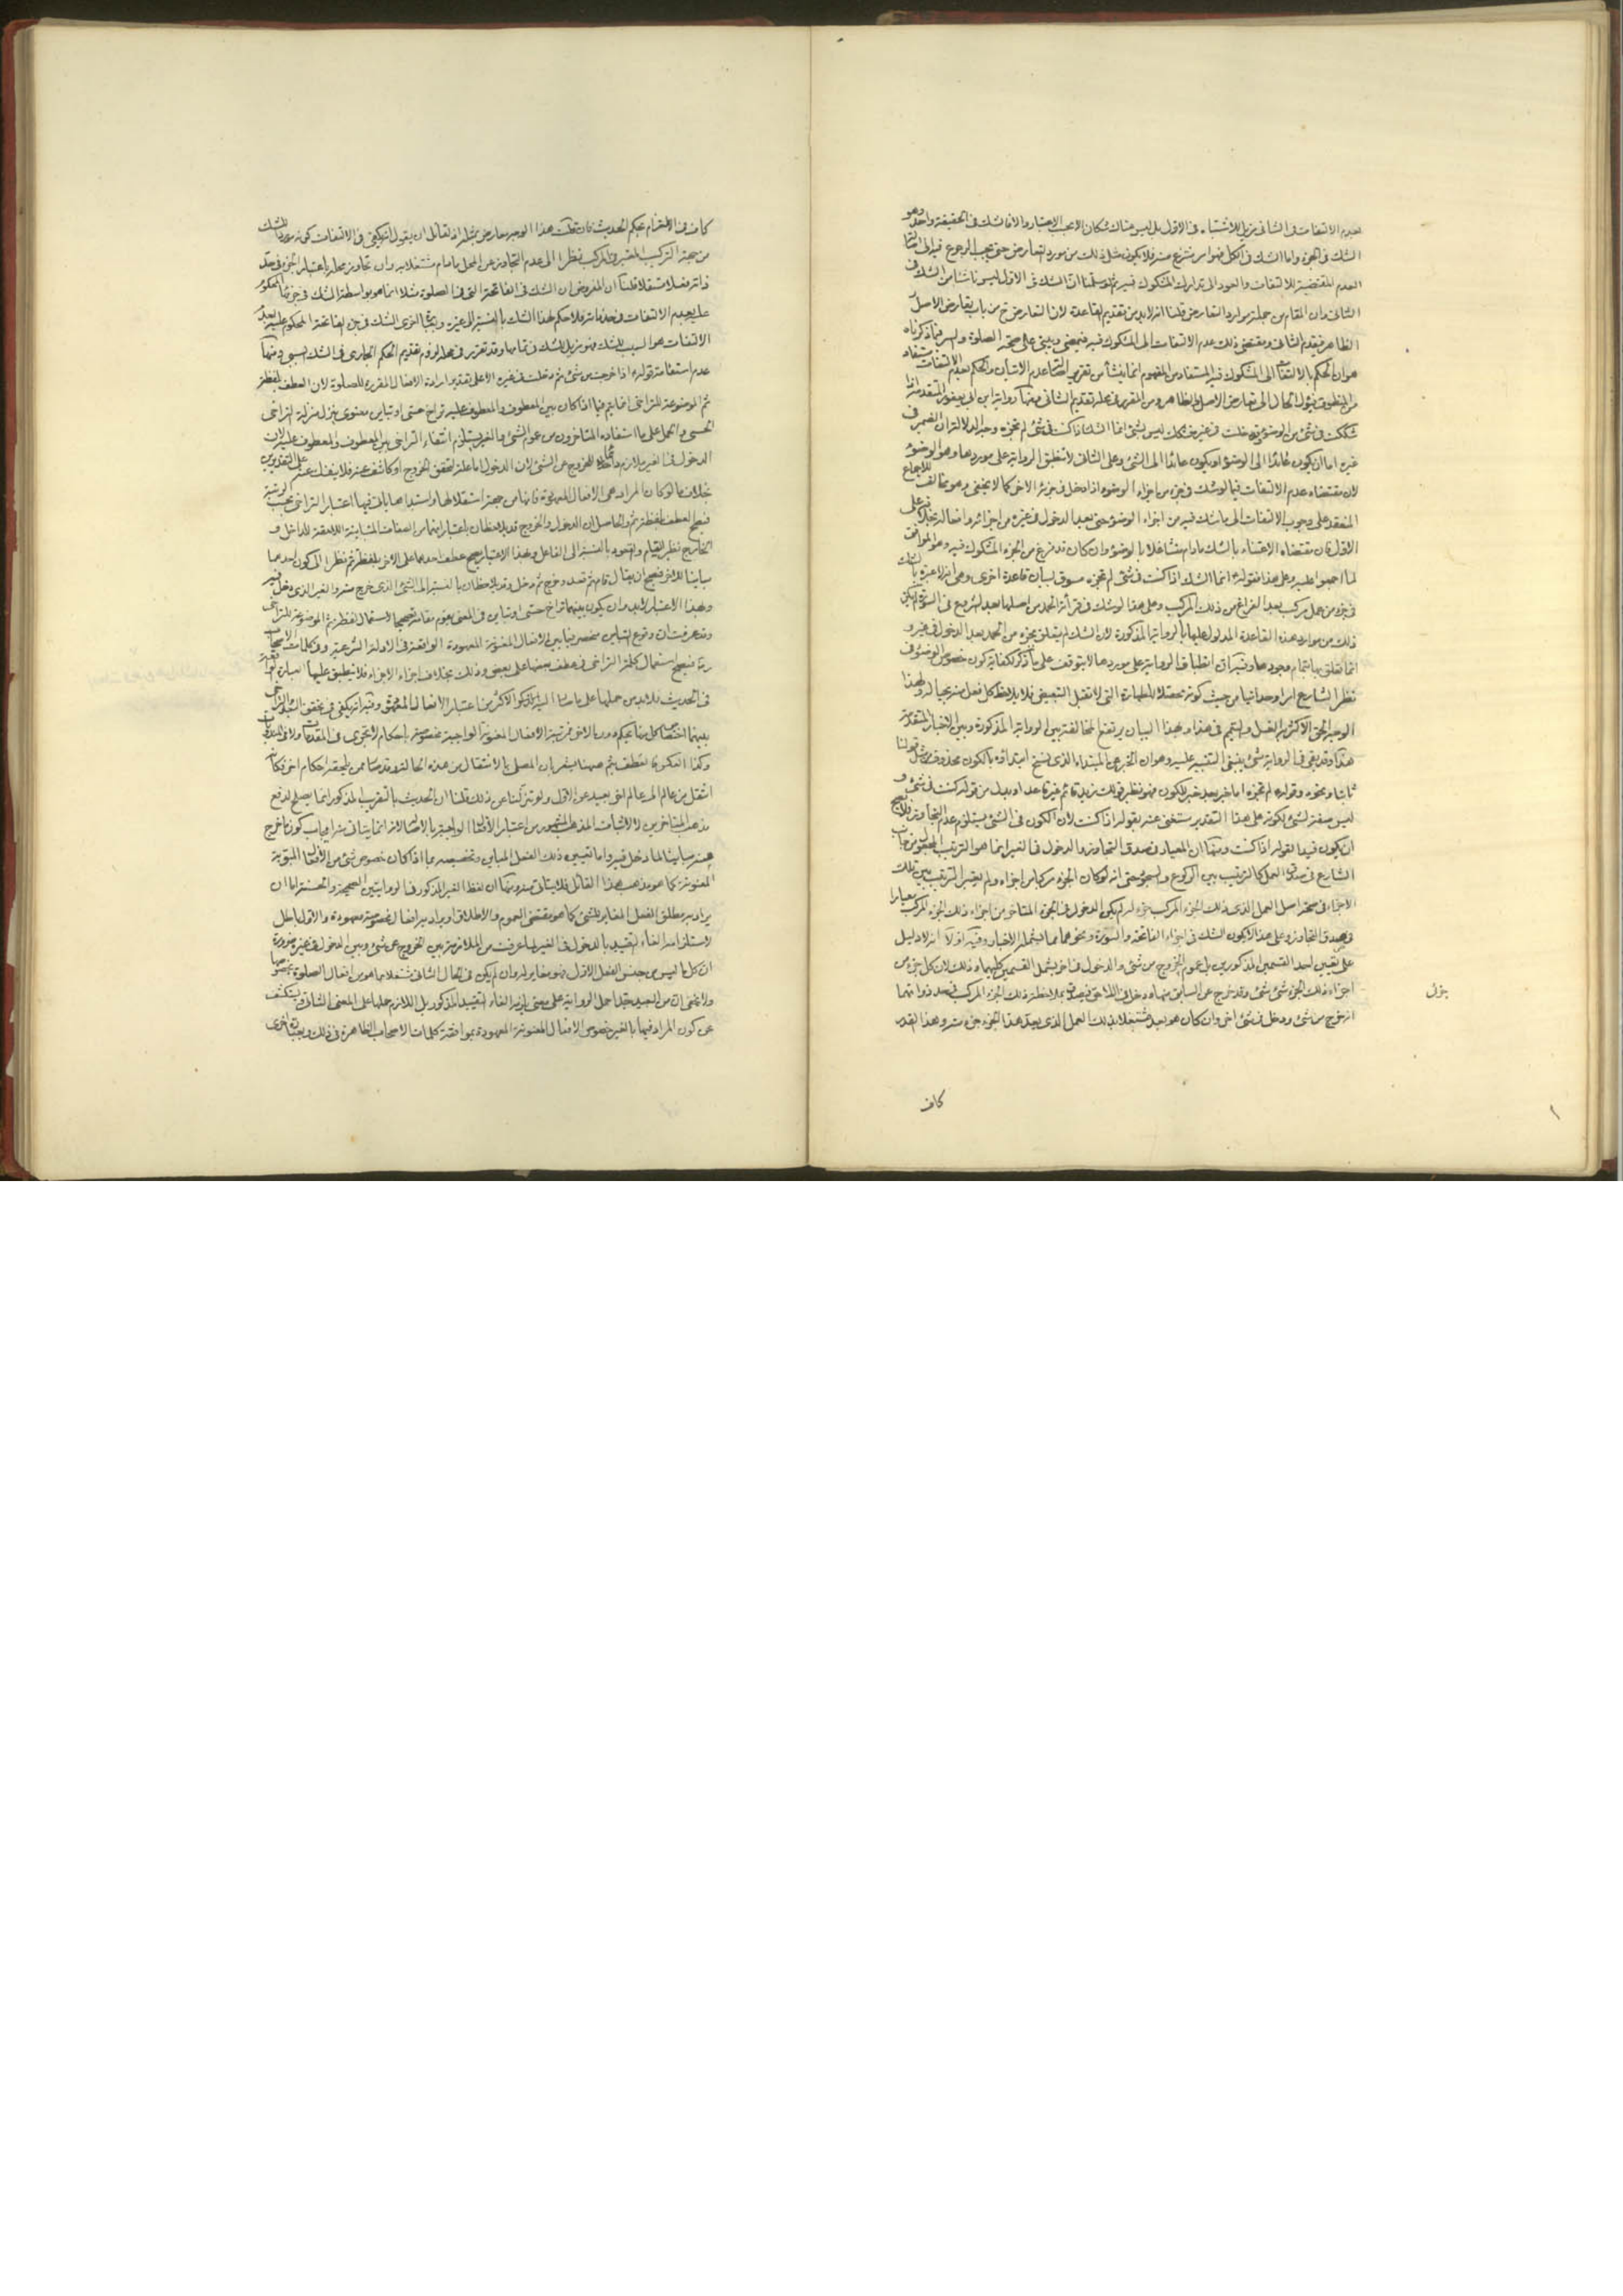 لعدم الالتفات فى الثانى مزيل للاشتباه فى الاول بل ليس هناك شكان الا بحسب الاعتبار والا فالشك فى الحقيقة واحد وهو
الشك فى الجزء واما الشك فى الكل فهو امر منتزع منه فلا يكون مثل ذلك من مورد التعارض حتى يجب الرجوع فيه الى
العدم المقتضية للالتفات والعود الى تدارك المشكوك فيه ثم لو سلمنا ان الشك فى الاول ليس ناشئا من الشك فى
الثانى وان المقام من جملة موارد التعارض قلنا انه لا بد من تقديم القاعدة لان التعارض ح من باب تعارض الاصل
الظاهر فيقدم الثانى ومقتضى ذلك عدم الالتفات الى المشكوك فيه فيمضى ويبنى على صحة الصلوة وليس فيما ذكرناه
هو ان الحكم بالالتفات الى المشكوك فيه المستفاد من المفهوم انما ينشأ من تقرير اصالة عدم الاتيان والحكم بعدم الالتفات مستفاد
من المنطوق فيئول الحال الى تعارض الاصل والظاهر ومن المقرر فى محله تقديم الثانى ومنها رواية ابن ابى يعفور المتقدمة اذا
شككت فى شئ من الوضوء ودخلت فى غيره فشكك ليس بشئ انما الشك اذا كنت فى شئ لم تجزه وجه الدلالة ان الضمير فى
غيره اما ان يكون عائدا الى الوضوء او يكون عائدا الى الشئ وعلى الثانى لا تنطبق الرواية على موردها وهو الوضوء
لان مقتضاه عدم الالتفات فيما لو شك فى جزء من اجزاء الوضوء اذا دخل فى جزئه الاخر كما لا يخفى وهو مخالف للاجماع
المنعقد على وجوب الالتفات الى ما شك فيه من اجزاء الوضوء حتى بعد الدخول فى غيره من اجزائه وافعاله بخلافه على
الاول فان مقتضاه الاعتناء بالشك ما دام متشاغلا بالوضوء وان كان قد فرغ من الجزء المشكوك فيه وهو الموافق
لما اجمعوا عليه وعلى هذا فقوله انما الشك اذا كنت فى شئ لم تجزه مسوق لبيان قاعدة اخرى وهى انه لا عبرة بالشك
فى جزء من عمل مركب بعد الفراغ من ذلك المركب وعلى هذا لو شك فى قرائة الحمد من اصلها بعد الشروع فى السورة لم يكن
ذلك من موارد هذه القاعدة المدلول عليها بالرواية المذكورة لان الشك لم يتعلق بجزء من الحمد بعد الدخول فى غيره و
انما تعلق بها بتمام وجودها وفيه ان انطباق الرواية على موردها لا يتوقف على ما ذكر لكفاية كون خصوص الوضوء فى
نظر الشارع امرا وحدانيا من حيث كونه محصلا للطهارة التى لا تقبل التبعيض فلا يلاحظ كل فعل منه بحياله ولهذا
الوجه الحق الاكثر الغسل والتيمم فى هذا وبهذا البيان يرتفع المخالفة بين الرواية المذكورة وبين الاخبار المتقدمة
هذا وقد بقى فى الرواية شئ ينبغى التنبيه عليه وهو ان الخبر عن المبتداء الذى نسخ ابتدائه بالكون محذوف مثل قولنا
ثابتا ونحوه وقوله لم تجزه اما خبر بعد خبر للكون فهو نظير قولك زيد قائم غير قاعد او بدل من قوله كنت فى شئ و
ليس صفة لشئ لكونه على هذا التقدير مستغنى عنه بقوله اذا كنت لان الكون فى الشئ يستلزم عدم التجاوز فلا يصح
ان يكون قيدا لقوله اذا كنت ومنها ان المعيار فى صدق التجاوز والدخول فى الغير انما هو الترتيب المجعول من جانب
الشارع فى صدق العمل كالترتيب بين الركوع والسجود حتى انه لو كان الجزء مركبا من اجزاء ولم يعتبر الترتيب بين تلك
الاجزاء فى صحة اصل العمل الذى ذلك الجزء المركب جزء له لم يكن الدخول فى الجزء المتاخر من اجزاء ذلك الجزء المركب معيارا
فى صدق التجاوز وعلى هذا لا يكون الشك فى اجزاء الفاتحة والسورة ونحوهما مما يشمله الاخبار وفيه اولا انه لا دليل
على تعيين احد القسمين المذكورين بل عموم الخروج من شئ والدخول فى اخر يشمل القسمين كليهما وذلك لان كل جزء من
اجزاء ذلك الجزء شئ وقد خرج عن السابق منها ودخل فى اللاحق فيصدق بملاحظة ذلك الجزء المركب فى حد ذواتهما
انه خرج من شئ ودخل فى شئ اخر وان كان هو بعد مشتغلا بذلك العمل الذى يعد هذا الجزء جزء منه وهذا القدر
يزل
كاف
كاف فى الالتزام بحكم الحديث فان قلت هذا الوجه معارض بمثله اذ لقائل ان يقول انه يكفى فى الالتفات كونه موردا للشك
من جهة التركيب المعتبر فى المركب نظرا الى عدم التجاوز عن المحل ما دام مشتغلا به وان تجاوز محله باعتبار الجزء فى حد
ذاته فعلا مستقلا قلنا ان المفروض ان الشك فى الفاتحة التى فى الصلوة مثلا انما هو بواسطة الشك فى جزئها المحكوم
عليه بعدم الالتفات فى حد ذاته فلا حكم لهذا الشك بالنسبة الى غيره
الالتفات هو السبب للشك فهو مزيل للشك فى تمامها وقد تقرر فى محله لزوم تقديم الحكم الجارى فى الشك السببى ومنها
عدم استقامة قوله اذا خرجت من شئ ثم دخلت فى غيره الا على تقدير ارادة الافعال المقررة للصلوة لان العطف بلفظة
ثم الموضوعة للتراخى انما يتم فيما اذا كان بين المعطوف والمعطوف عليه تراخ حسى او تباين معنوى ينزل منزلة التراخى
الحسى والحمل على ما استفاده المتاخرون من عموم الشئ والغير يستلزم انتفاء التراخى بين المعطوف والمعطوف عليه لان
الدخول فى الغير ملازم للخروج عن الشئ لان الدخول اما علة لتحقق الخروج او كاشف عنه فلا ينفك عنه على التقديرين
بخلاف ما لو كان المراد هى الافعال المعهودة فانها من جهة استقلالها
فيصح العطف بلفظة ثم والحاصل ان الدخول والخروج قد يلاحظان باعتبار انهما من الصفات المتباينة اللاحقة للداخل و
الخارج نظير القيام والقعود بالنسبة الى الفاعل وبهذا الاعتبار يصح عطف احدهما على الاخر بلفظة ثم نظرا الى كون احدهما
مباينا للاخر فيصح ان يقال قام ثم قعد وخرج ثم دخل وقد يلاحظان بالنسبة الى الشئ الذى خرج منه والغير الذى دخل فيه
وبهذا الاعتبار لا بد وان يكون بينهما تراخ حسى او تباين فى المعنى يقوم مقامه تصحيحا لاستعمال لفظة ثم الموضوعة للتراخى
وقد عرفت ان وقوع التباين منحصر فيما بين الافعال المعنونة المعهودة الواقعة فى الادلة الشرعية وفى كلمات الاصحاب
فيصح استعمال كلمة التراخى فى عطف بعضها على بعض وذلك بخلاف اجزاء الاجزاء فلا ينطبق عليها العبارة الواقعة
فى الحديث فلا بد من حملها على ما
بينهما اختصاص كل منهما بحكم
وكذا
انتقل من عالم الى عالم اخر بعيد عن الاول ولو تنزلنا عن ذلك قلنا ان الحديث بالتقريب المذكور انما يصلح لدفع
مذهب المتاخرين لا لاثبات المذهب المشهور من اعتبار الافعال الواجبة بالاصالة
عنه مباينا لما دخل فيه واما تعيين ذلك الفعل المباين وتخصيصه بما اذا كان خصوص شئ من الافعال المبوبة
المعنونة كما هو مذهب هذا القائل فلا يتاتى منه ومنها ان لفظ الغير المذكور فى الروايتين الصحيحة والحسنة اما ان
يراد به مطلق الفعل المغاير للشئ كما هو مقتضى العموم والاطلاق او يراد به افعال مخصوصة معهودة والاول باطل
لاستلزامه الغاء التقييد بالدخول فى الغير لما عرفت من الملازمة بين الخروج عن شئ وبين الدخول فى غيره ضرورة
ان كل ما ليس من جنس الفعل الاول فهو مغاير له وان لم يكن فى الحال الثانى مشتغلا بما هو من افعال الصلوة
ولا يخفى ان من البعيد جدا حمل الرواية على معنى يلزمه الغاء التقييد المذكور بل اللازم حملها على المعنى الثانى ويستكشف
عن كون المراد فيهما بالغير خصوص الافعال المعنونة المعهودة بموافقة كلمات الاصحاب الظاهرة فى ذلك وبعبارة اخرى